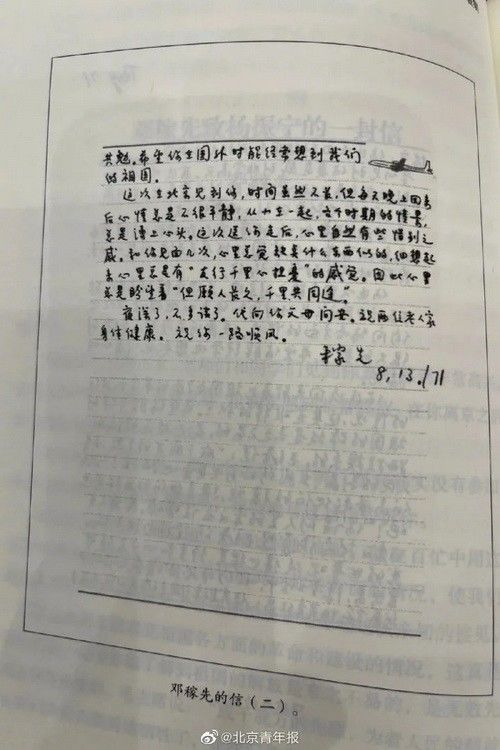 共勉。希望你在国外时能经常想到我们
的祖国。
这次在北京见到你,时间虽然不长,但每天晚上回来
后心情总是不很平静,从小在一起,各个时期的情景,
总是涌上心头。这次送你走后,心里自然有些惜别之
感。和你见面几次,心里总觉缺点什么东西似的,细想起
来心里总是有“友行千里心担忧”的感觉。因此心里
总是盼望着“但愿人长久,千里共同途”。
夜深了,不多谈了。代向你父母问安。祝两位老人家
身体健康。祝你一路顺风。
稼先
8.13./71
邓稼先的信(二)。
@北京青年报